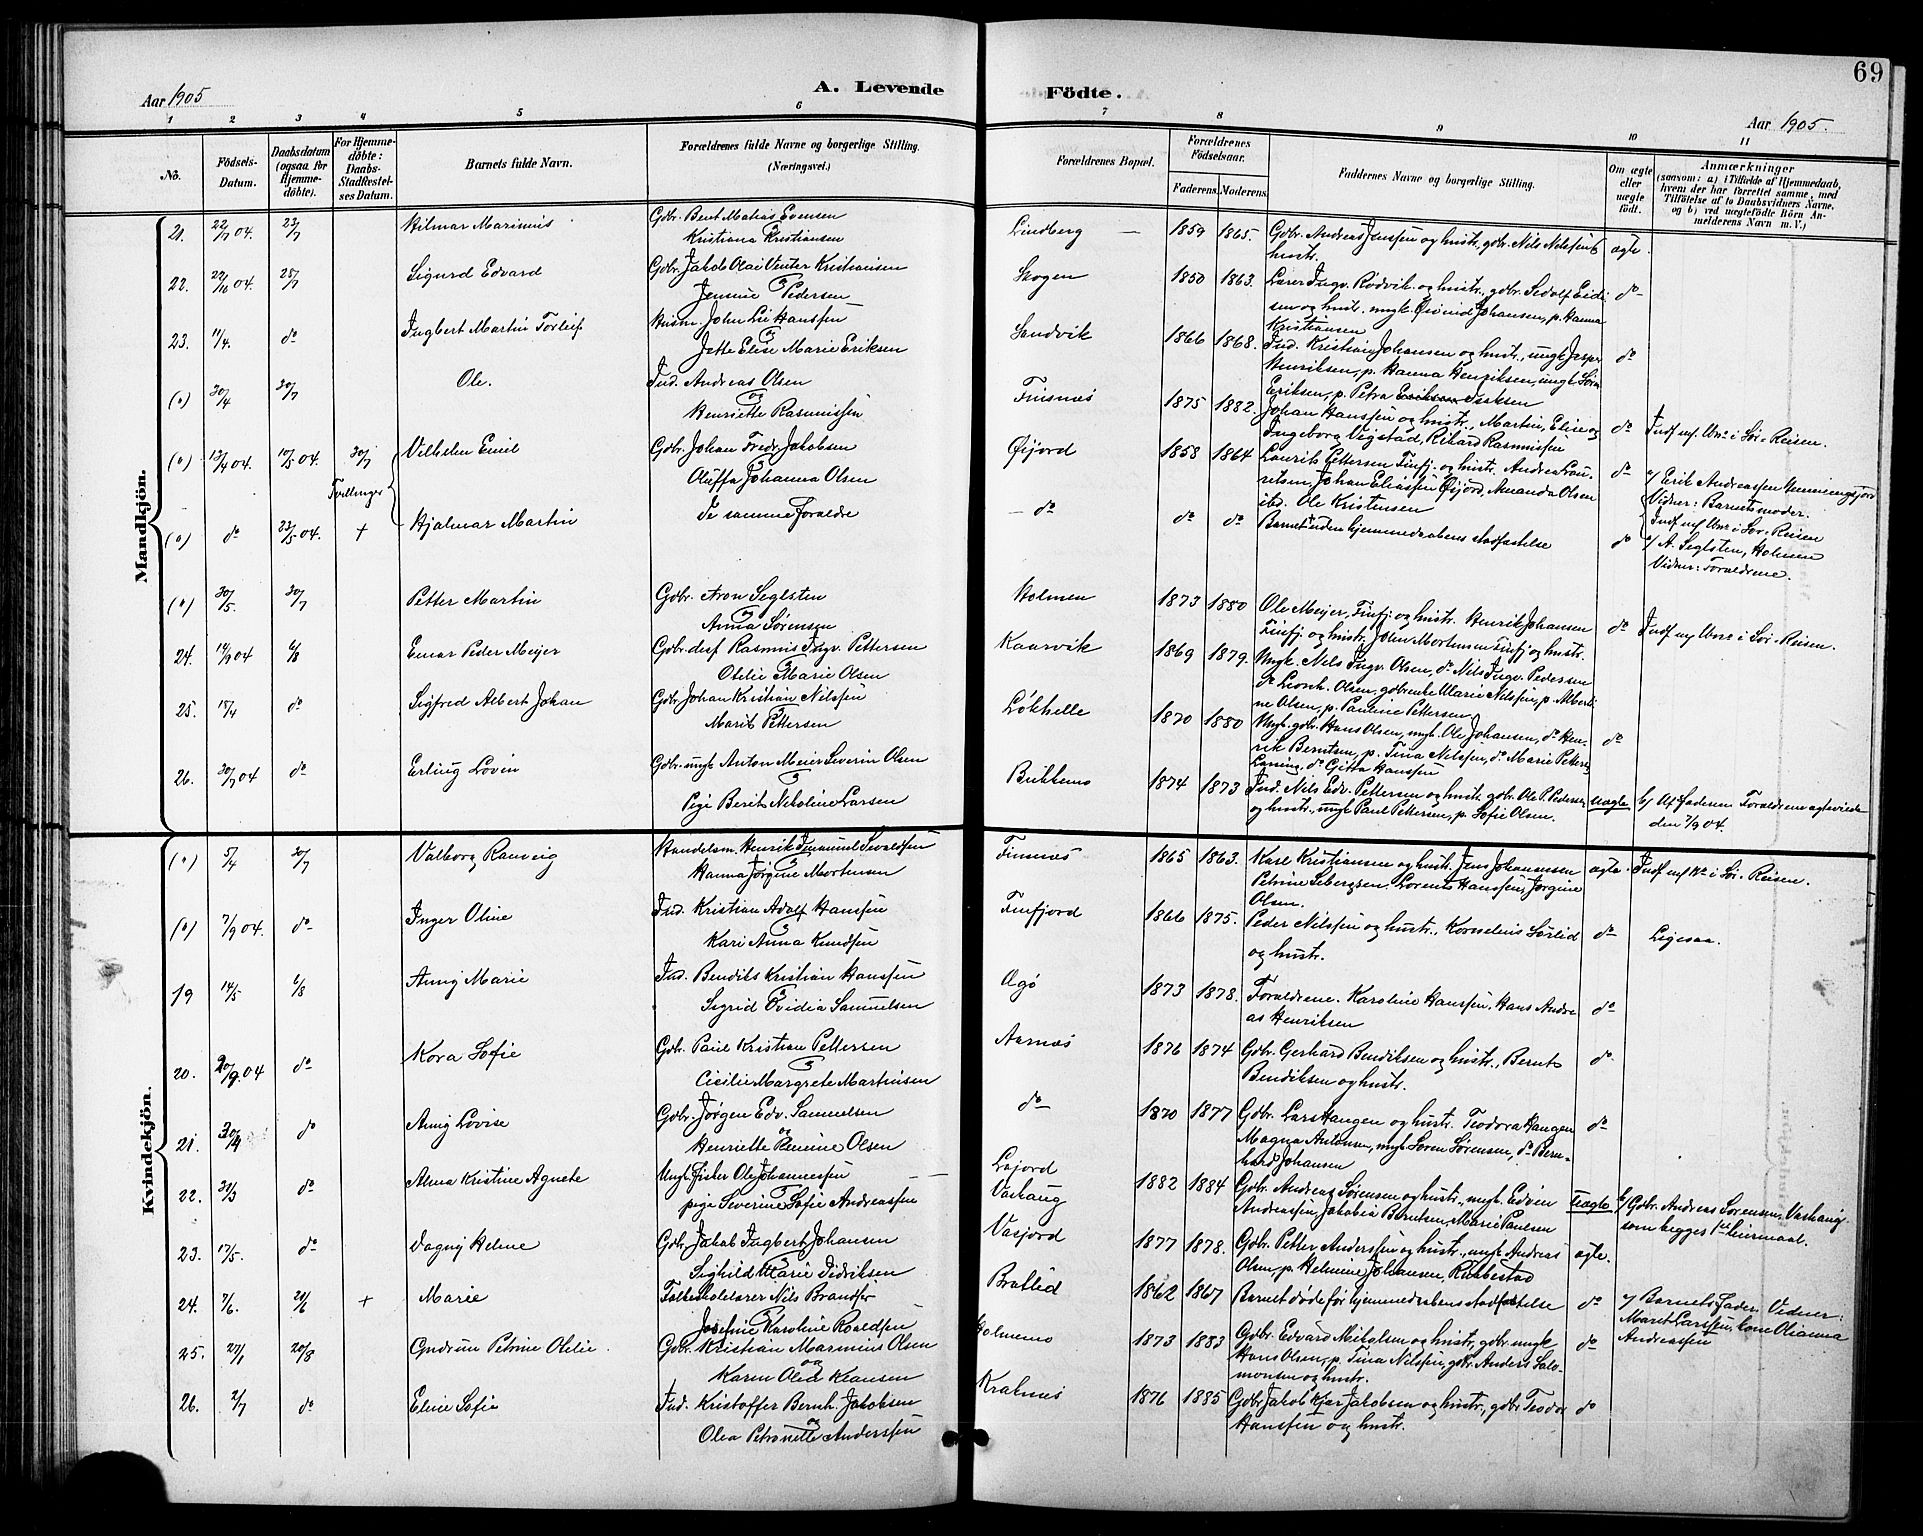 69
Aar 1905
A. Levende
Födte.
Aar 1905.
1 2 3 4 5 6 7 8 9 10 11
No.
Födsels-Datum.
Daabsdatum (ogsaa for Hjemmedöbte).
For Hjemmedöbte: Daabs-Stadfæstelses Datum.
Barnets fulde Navn.
Forældrenes fulde Navne og borgerlige Stilling.
(Næringsvei.)
Forældrenes Bopæl.
Forældrenes Födselsaar.
Faderens. Moderens.
Faddernes Navne og borgerlige Stilling.
Om ægte eller uægte födt.
Anmærkninger
(saasom: a) i Tilfælde af Hjemmedaab, hvem der har forrettet samme, med Tilföielse af to Daabsvidners Navne, og b) ved uægtefödte Börn Anmelderens Navn m. V.)
Mandkjön.
21. 22/7 04 23/7 Hilmar Marinius Gdbr. Bent Matias Evensen
Kristiana Kristiansen Lindberg 1859 1865. Gdbr. Andreas Jenssen og hustr., gdbr. Nils Nilssen &
hustr. ægte.
22. 22/10 04. 23/7 Sigurd Edvard Gdbr. Jakob Olai Venter Kristiansen
Jensine Pedersen Skogen 1850 1863. Lærer Ingv. Rödvik og hustr., gdbr. Sedolf Eidi
sen og hustr. ungk. Øivind Johansen, p. Hanna
Kristiansen do
23. 11/4. do Ingbert Martin Torleif Husm. John Lui Hanssen
og
Jette Elise Marie Eriksen Sandvik 1866 1868. Ind. Kristian Johansen og hustr., ungk. Jesper
Henriksen, p. Hanna Henriksen, ungk. Sörn
Eriksen, p. Petra Isaksen do
(") 30/4 30/7 Ole. Ind. Andreas Olsen
og
Henriette Rasmussen Finsnæs 1875 1882. Johan Hanssen og hustr., Martin, Elise og
Ingeborg Vigstad, Rikard Rasmussen do Indf. uf. Unr i Sör-Reisen.
(") 13/4 04. 10/5 04. 30/7 Vilhelm Emil Gdbr. Johan Fredr. Jakobsen
Oluffa Johanna Olsen Øijord 1858 1864 Laurits Pettersen Finfj. og hustr. Andrea Lau-
ritsen, Johan Eliassen Øijord, Amanda Olsen
ibd. Ole Kristensen do a/ Erik Andreassen Hemmingsjord
Vidner: Barnets moder.
Tvillinger
(") do 23/5 04. + Hjalmar Martin de samme Forældre do do do Barnet † uden hjemmedaabens stadfæstelse do Indf. uf Unr i Sör-Reisen
a/ A. Seglsten, Holmen
Vidner: Forældrene.
(") 30/5. 30/7 Petter Martin Gdbr. Aron Seglsten
og
Anna Sörensen Holmen 1873 1880 Ole Meijer, Finfj. og hustr. Henrik Johansen
Finfj. og hustr. John Mortensen Finfj. og hustr. do Indf. uf Unr i Sör-Reisen.
24. 14/9 04 6/8 Einar Peder Meijer Gdbr. desf Rasmus Ingv. Pettersen
Otelie Marie Olsen Kaarvik 1869 1879. Ungk. Nils Ingv. Olsen, do Nils Ingv. Pedersen
do Leonh. Olsen, gdbr enke Marie Nilssen, p. Alberti
ne Olsen, p. Pauline Pettersen
25. 15/4 do Sigfred Albert Johan Gdbr. Johan Kristian Nilssen
Marit Pettersen Lökhelle 1870 1880 Ungk. gdbr. Hans Olsen, ungk. Ole Johansen, do Hen-
rik Berntsen, p. Tina Nilssen, do Marie Petters
Laning, do Gitta Hanssen do
26. 30/7 04 do Erling Lovin Gdbr. ungk Anton Meier Severin Olsen
Pige Berit Nikoline Larsen Bukkenes 1874 1873 Ind. Nils Edv. Pettersen og hustr. gdbr. Ole P. Pedersen
og hustr., ungk Paul Pettersen, p. Sofie Olsen. uægte b/ Af faderen. Forældrene ægteviede
den 7/9 04.
Kvindekjön.
(") 5/4 30/7 Valborg Ranveig Handelsm. Henrik Imanuel Sevaldsen
Hanna Jörgine Mortensen Finsnæs 1865 1863. Karl Kristiansen og hustr. Jens Johannesen
Petrine Sebergsen, Lorents Hanssen, Jörgine
Olsen. ægte. Indf. uf Unr i Sör-Reisen.
(") 7/9 04. do Inger Oline Ind. Kristian Adolf Hanssen
Kari Anna Knudsen Finfjord 1866 1875. Peder Nilssen og hustr., Kornelius Sörlid
og hustr. do Ligesaa.
19 14/5 6/8 Anny Marie Ind. Bendiks Kristian Hanssen
Sigrid Ovidia Samuelsen Ogö 1873 1878. Forældrene. Karoline Hanssen, Hans Andre
as Henriksen do
20. 20/9. 04 do Kora Sofie Gdbr. Paul Kristian Pettersen
Cicilie Margrete Martinsen Aarnæs 1876 1874 Gdbr. Gerhard Bendiksen og hustr., Bernt
Bendiksen og hustr. do
21. 30/4 do Anny Lovise Gdbr. Jörgen Edv. Samuelsen
og
Henriette Penine Olsen do 1870 1877 Gdbr. Lars Haugen og hustr. Teodora Haugen
Magna Antonsen, ungk Sören Sörensen, do Bern-
hard Johansen do
22. 31/3 do Alma Kristine Agnete Ungk. Fisker Ole Johannessen
pige Severine Sofie Andreassen Lajord
Vashaug 1882 1884 Gdbr. Andreas Sörensen og hustr., ungk. Edvin
Andreassen, Jakobia Berntsen, Marie Paulsen Uægte b/ Gdbr. Andreas Sörensen, Vashaug.
som begges 1ste leiermaal.
23. 17/5. do Dagny Helene Gdbr. Jakob Ingbert Johansen
Sighild Marie Didriksen Vasjord 1877 1878. Gdbr. Petter Anderssen og hustr., ungk. Andreas
Olsen, p. Helmine Johansen, Rubbestad ægte.
24. 7/6. 20/6 + Marie Folkeskolelærer Nils Brandser
Josefine Karoline Roaldsen Bratlid 1862 1867 Barnet döde för hjemmedaabens stadfæstelse do a/ Barnets fader. Vidner:
Maret Larssen, kone Olianna
Andreassen
25. 27/1 20/8 Gudrun Petrine Otelie. Gdbr. Kristian Marinius Olsen
og
Karen Olea Klausen Holmenes 1873 1883 Gdbr. Edvard Mikalsen og hustr., gdbr. ungk
Hans Olsen, p. Tina Nilssen, gdbr. Anders Salo-
monsen og hustr. do
26. 2/7 do Eline Sofie Ind. Kristoffer Bernh. Jakobsen
og
Olea Petronette Anderssen Kraknes 1876 1885 Gdbr. Jakob Kjær Jakobsen og hustr., gdbr. Teodor
Hanssen og hustr. do